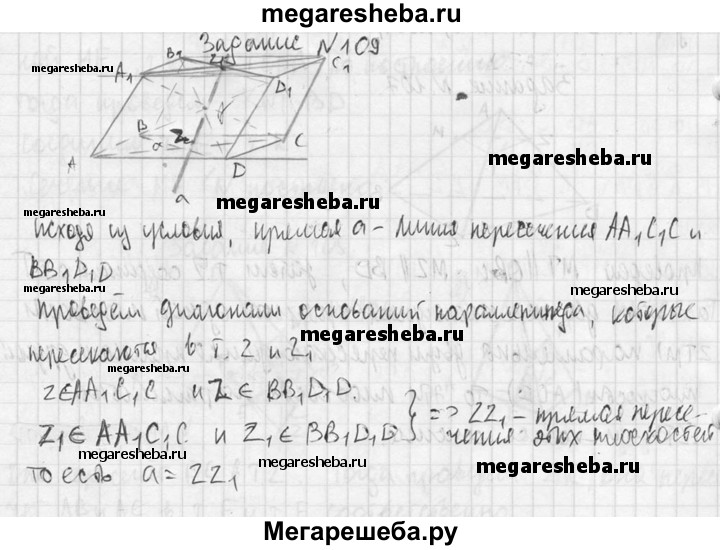 megaresheba.ru
Задание №109
B₁ Z₁ C₁
A₁ D₁
megaresheba.ru
B Z C
A a D
a
megaresheba.ru
megaresheba.ru
megaresheba.ru
Исходя из условия, прямая a - линия пересечения AA₁C₁C и
BB₁D₁D
megaresheba.ru
megaresheba.ru
Проведём диагонали оснований параллепипеда, которые
megaresheba.ru
пересекаются в т. Z и Z₁
megaresheba.ru
Z∈AA₁C₁C и Z∈BB₁D₁D.
Z₁∈AA₁C₁C и Z₁∈BB₁D₁D } => ZZ₁ - прямая пересе-
чения этих плоскостей
megaresheba.ru
megaresheba.ru
то есть a = ZZ₁
megaresheba.ru
Мегарешеба.ру